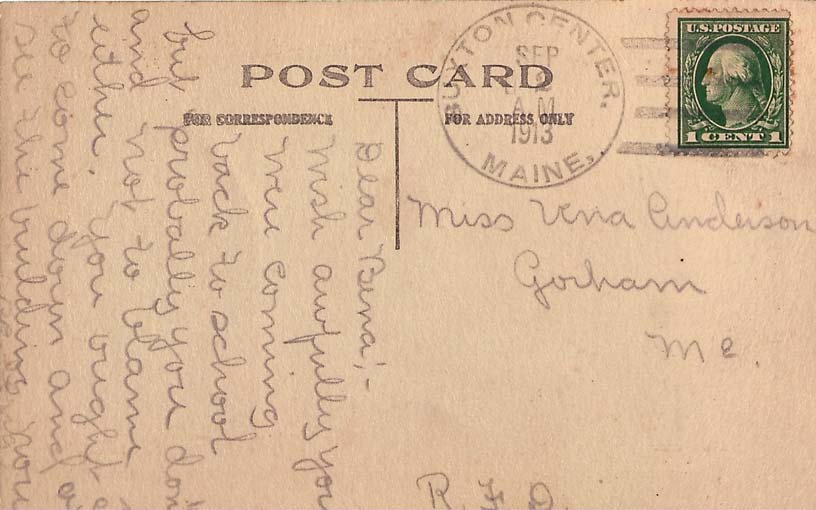 POST CARD
FOR CORRESPONDENCE
FOR ADDRESS ONLY
BUXTON CENTER,
SEP
A M
1913
MAINE.
U.S. POSTAGE
1 CENT 1
Miss Vena Anderson
Gorham
Me.
R. F. D.
Dear Bena;-
Wish awfully you
were coming
back to school
but probably you don't
and not to blame
either. You ought
to come down and
see the building now